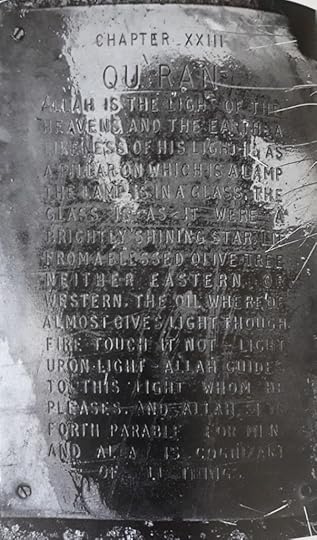 CHAPTER XXIII
QURAN
ALLAH IS THE LIGHT OF THE
HEAVENS AND THE EARTH, A
LIKENESS OF HIS LIGHT IS AS
A PILLAR ON WHICH IS A LAMP
THE LAMP IS IN A GLASS, THE
GLASS IS AS IT WERE A
BRIGHTLY SHINING STAR, LIT
FROM A BLESSED OLIVE TREE
NEITHER EASTERN, OR
WESTERN, THE OIL WHEREOF
ALMOST GIVES LIGHT THOUGH
FIRE TOUCH IT NOT - LIGHT
UPON LIGHT - ALLAH GUIDES
TO THIS LIGHT WHOM HE
PLEASES, AND ALLAH
FORTH PARABLE FOR MEN
AND ALLAH IS COGNIZANT
OF THINGS